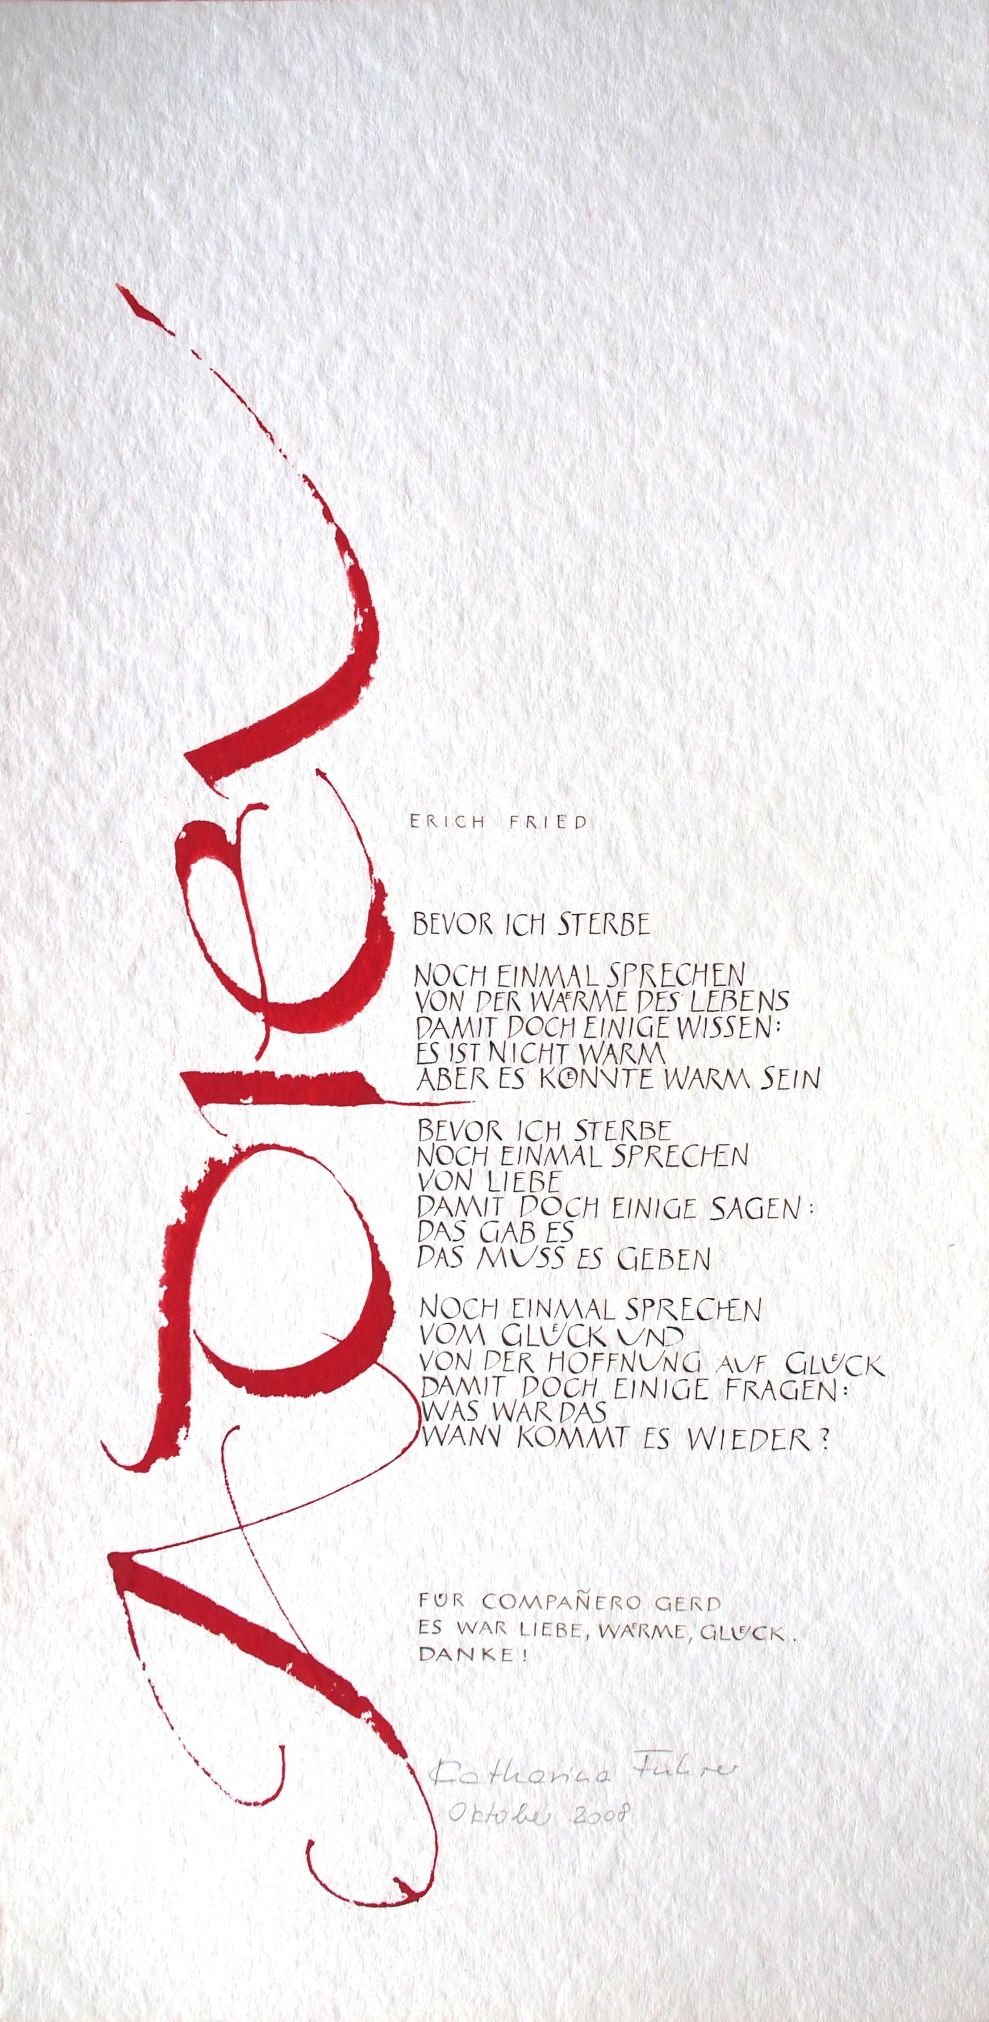 ERICH FRIED
BEVOR ICH STERBE
NOCH EINMAL SPRECHEN
VON DER WÄRME DES LEBENS
DAMIT DOCH EINIGE WISSEN:
ES IST NICHT WARM
ABER ES KÖNNTE WARM SEIN
BEVOR ICH STERBE
NOCH EINMAL SPRECHEN
VON LIEBE
DAMIT DOCH EINIGE SAGEN:
DAS GAB ES
DAS MUSS ES GEBEN
NOCH EINMAL SPRECHEN
VOM GLÜCK UND
VON DER HOFFNUNG AUF GLÜCK
DAMIT DOCH EINIGE FRAGEN:
WAS WAR DAS
WANN KOMMT ES WIEDER?
FÜR COMPAÑERO GERD
ES WAR LIEBE, WÄRME, GLÜCK.
DANKE!
Katharina Führer
Oktober 2008